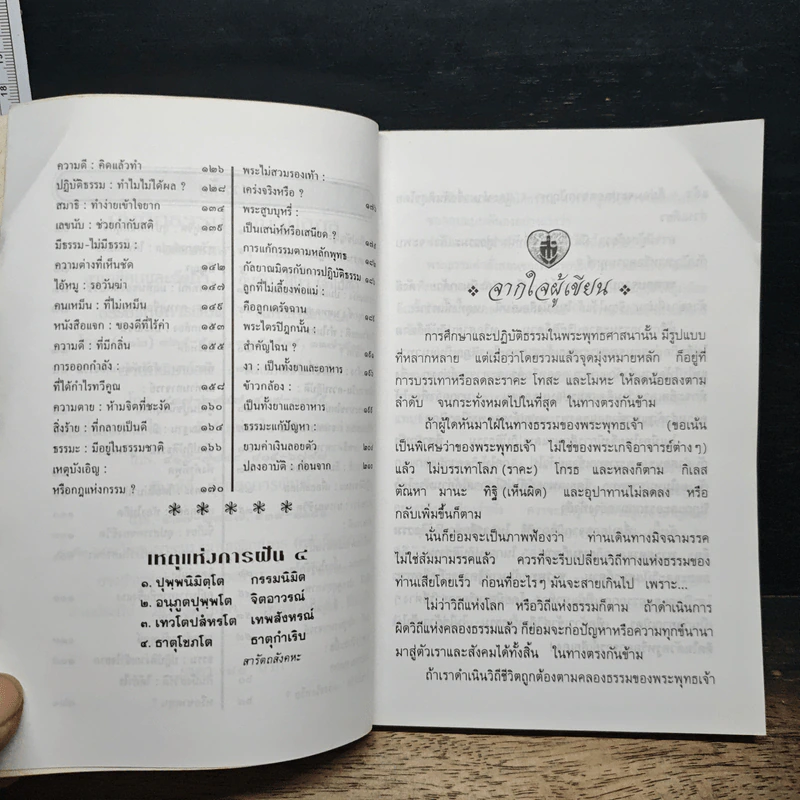 ความดี : คิดแล้วทำ ๑๒๖
ปฏิบัติธรรม : ทำไมไม่ได้ผล ? ๑๒๘
สมาธิ : ทำง่ายเข้าใจยาก ๑๓๔
เลขนับ : ช่วยกำกับสติ ๑๓๙
มีธรรม-ไม่มีธรรม :
ความต่างที่เห็นชัด ๑๔๒
ไอ้หมู : รอวันฆ่า ๑๔๗
คนเหมือน : ที่ไม่เหมือน ๑๔๙
หนังสือแจก : ของดีที่ไร้ค่า ๑๕๓
ความดี : ที่มีกลิ่น ๑๕๕
การออกกำลัง :
ที่ได้กำไรทวีคูณ ๑๕๘
ความตาย : ห้ามจิตที่ชะงัด ๑๖๐
สิ่งร้าย : ที่กลายเป็นดี ๑๖๔
ธรรมะ : มีอยู่ในธรรมชาติ ๑๖๖
เหตุบังเอิญ :
หรือกฎแห่งกรรม ? ๑๗๐
พระไม่สวมรองเท้า :
เคร่งจริงหรือ ?
พระสูบบุหรี่ :
เป็นเสน่ห์หรือเสนียด ?
การแก้กรรมตามหลักพุทธ
กัลยาณมิตรกับการปฏิบัติธรรม
ลูกที่ไม่เลี้ยงพ่อแม่ :
คือลูกเดรัจฉาน
พระไตรปิฎกนั้น :
สำคัญไฉน ?
งา : เป็นทั้งยาและอาหาร
ข้าวกล้อง :
เป็นทั้งยาและอาหาร
ธรรมะแก้ปัญหา :
ยามค่าเงินลอยตัว
ปลงอาบัติ : ก่อนจาก
เหตุแห่งการฝัน ๔
๑. ปุพฺพนิมิตฺโต กรรมนิมิต
๒. อนุภูตปุพฺพโต จิตอาวรณ์
๓. เทวโตปสํหรโต เทพสังหรณ์
๔. ธาตุโขภโต ธาตุกำเริบ
สารัตถสังคหะ
จากใจผู้เขียน
การศึกษาและปฏิบัติธรรมในพระพุทธศาสนานั้น มีรูปแบบ
ที่หลากหลาย แต่เมื่อว่าโดยรวมแล้วจุดมุ่งหมายหลัก ก็อยู่ที่
การบรรเทาหรือลดละราคะ โทสะ และโมหะ ให้ลดน้อยลงตาม
ลำดับ จนกระทั่งหมดไปในที่สุด ในทางตรงกันข้าม
ถ้าผู้ใดหันมาใฝ่ในทางธรรมของพระพุทธเจ้า (ขอเน้น
เป็นพิเศษว่าของพระพุทธเจ้า ไม่ใช่ของพระเกจิอาจารย์ต่างๆ)
แล้ว ไม่บรรเทาโลภ (ราคะ) โกรธ และหลงก็ตาม กิเลส
ตัณหา มานะ ทิฐิ (เห็นผิด) และอุปาทานไม่ลดลง หรือ
กลับเพิ่มขึ้นก็ตาม
นั่นก็ย่อมจะเป็นภาพฟ้องว่า ท่านเดินทางมิจฉามรรค
ไม่ใช่สัมมามรรคแล้ว ควรที่จะรีบเปลี่ยนวิถีทางแห่งธรรมของ
ท่านเสียโดยเร็ว ก่อนที่อะไรๆ มันจะสายเกินไป เพราะ...
ไม่ว่าวิถีแห่งโลก หรือวิถีแห่งธรรมก็ตาม ถ้าดำเนินการ
ผิดวิถีแห่งคลองธรรมแล้ว ก็ย่อมจะก่อปัญหาหรือความทุกข์นานา
มาสู่ตัวเราและสังคมได้ทั้งสิ้น ในทางตรงกันข้าม
ถ้าเราดำเนินวิถีชีวิตถูกต้องตามคลองธรรมของพระพุทธเจ้า